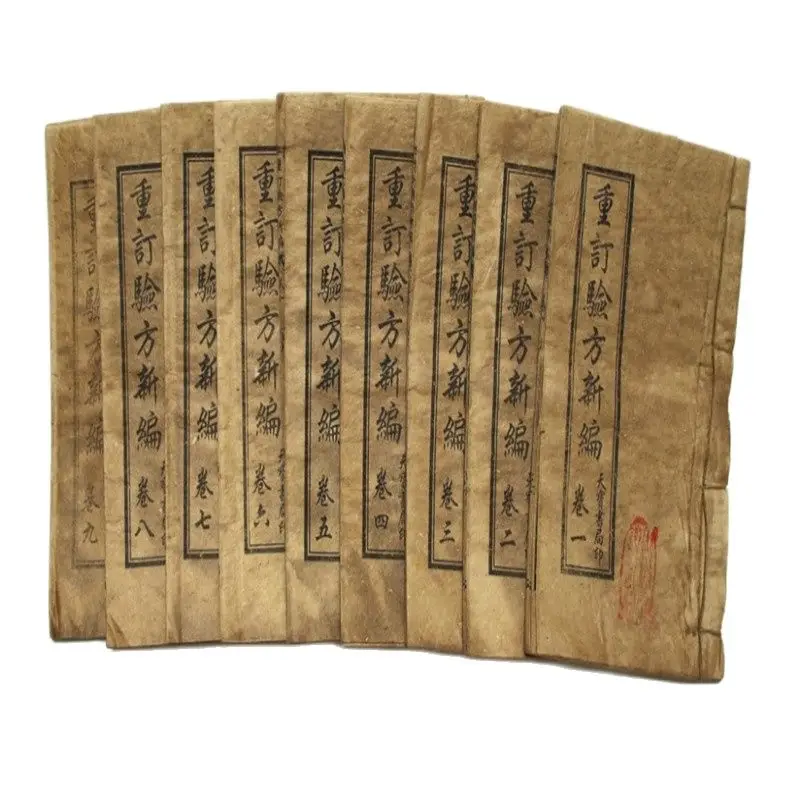 重訂驗方新編 卷一
天寶書局印
重訂驗方新編 卷二
重訂驗方新編 卷三
重訂驗方新編 卷四
重訂驗方新編 卷五
重訂驗方新編 卷六
重訂驗方新編 卷七
重訂驗方新編 卷八
重訂驗方新編 卷九